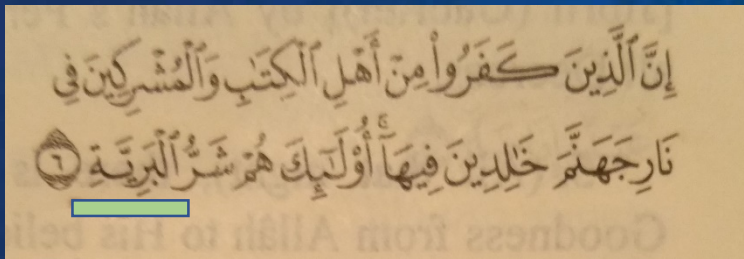 إِنَّ ٱلَّذِينَ كَفَرُوا۟ مِنْ أَهْلِ ٱلْكِتَـٰبِ وَٱلْمُشْرِكِينَ فِى
نَارِ جَهَنَّمَ خَـٰلِدِينَ فِيهَآ ۚ أُو۟لَـٰٓئِكَ هُمْ شَرُّ ٱلْبَرِيَّةِ ٦